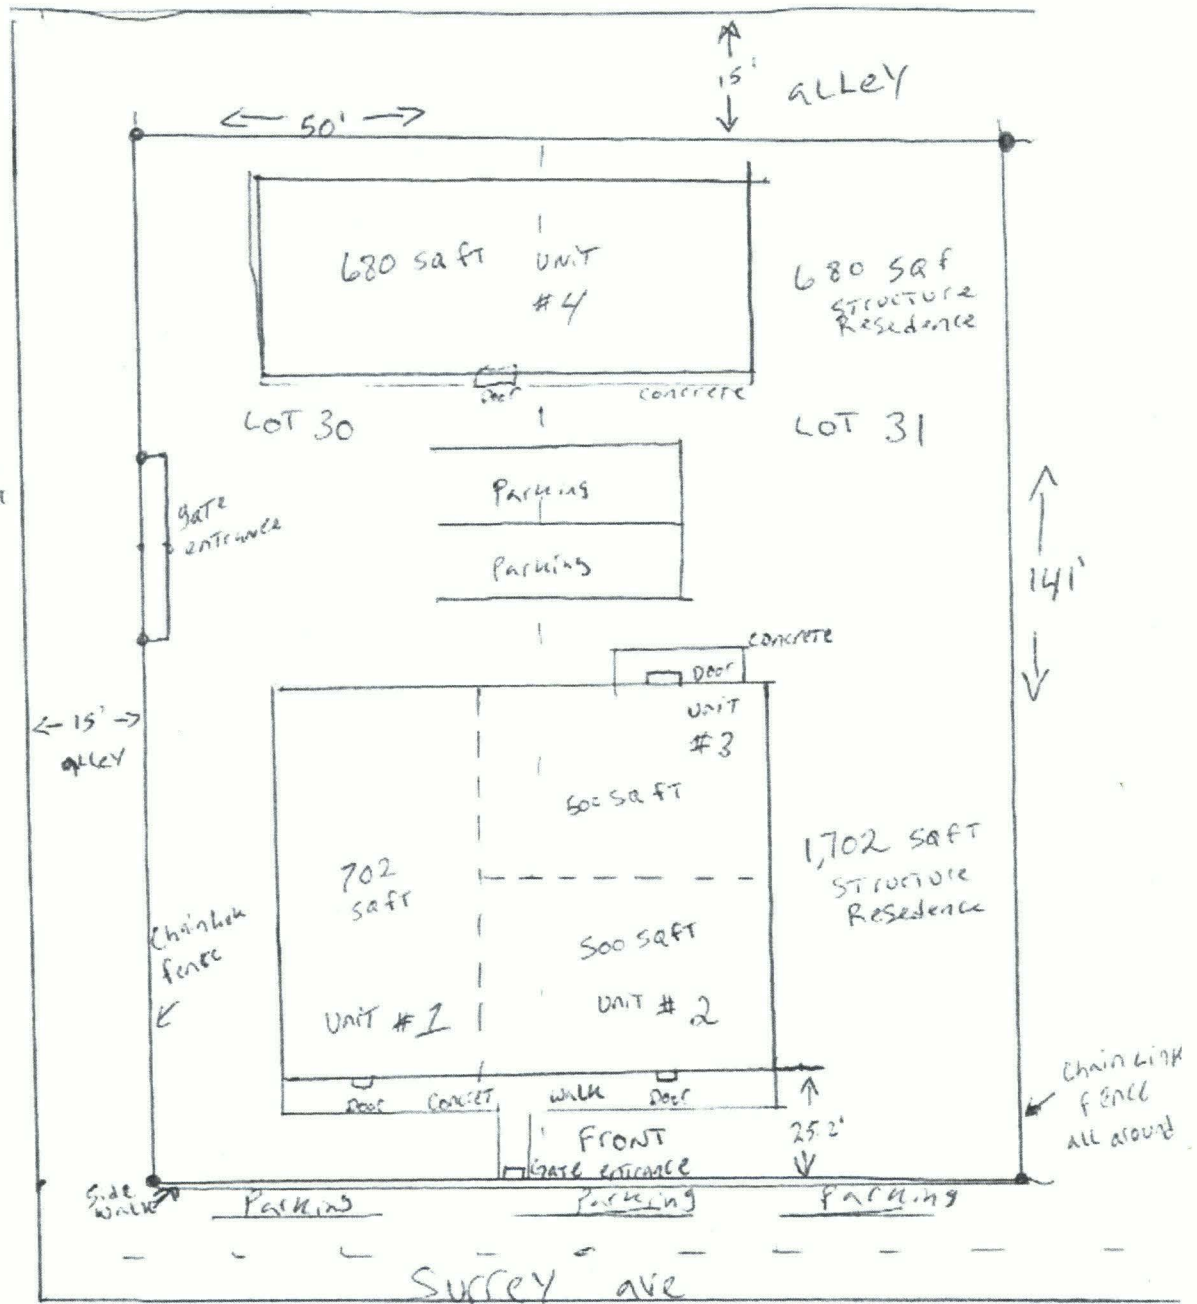 15'
aLLeY
50'
680 SQ FT
UNIT
#4
680 SQ F
STructure
Resedence
Door
concrete
LOT 30
LOT 31
gaTe
enTrance
Parking
Parking
141'
concrete
Door
UNIT
#3
15'
alleY
500 SQ FT
702
SQ FT
1,702 SQ FT
STructure
Resedence
Chainlink
fence
500 SQ FT
UNIT #1
UNIT #2
Chain Link
fence
all around
Door
Concret
walk
Door
25.2'
FRONT
Gate entrance
Side
walk
Parking
Parking
Parking
Surrey ave